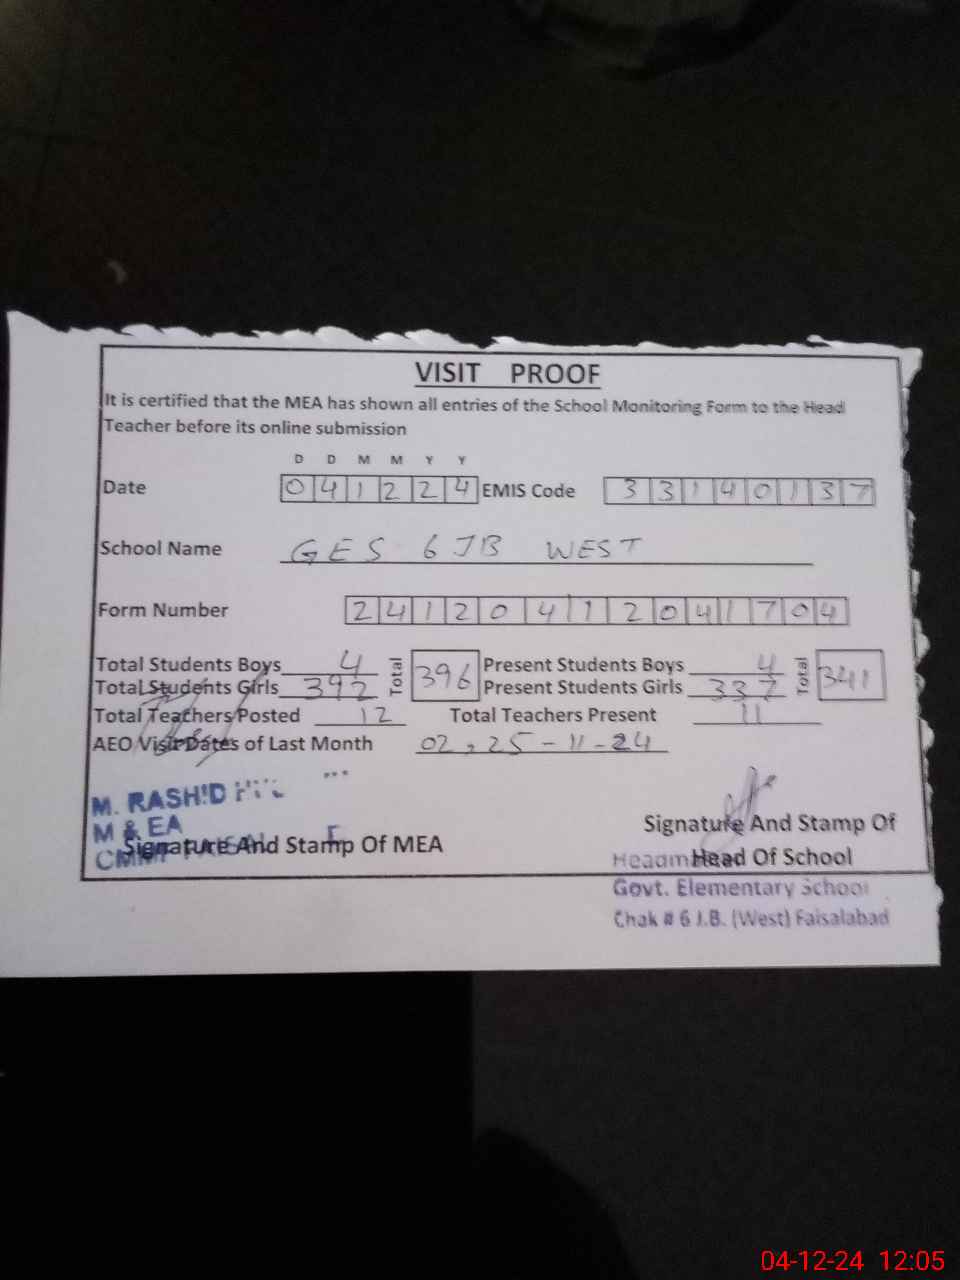 VISIT PROOF
It is certified that the MEA has shown all entries of the School Monitoring Form to the Head
Teacher before its online submission
D D M M Y Y
Date 041224 EMIS Code 33140137
School Name GES 6 JB WEST
Form Number 24120412041704
Total Students Boys 4 Total 396 Present Students Boys 4 Total 341
Total Students Girls 392 Present Students Girls 337
Total Teachers Posted 12 Total Teachers Present 11
AEO Visit Dates of Last Month 02, 25-11-24
M. RASHID
M & EA
Signature And Stamp Of MEA
Signature And Stamp Of
Head Of School
Govt. Elementary School
Chak # 6 J.B. (West) Faisalabad
04-12-24 12:05